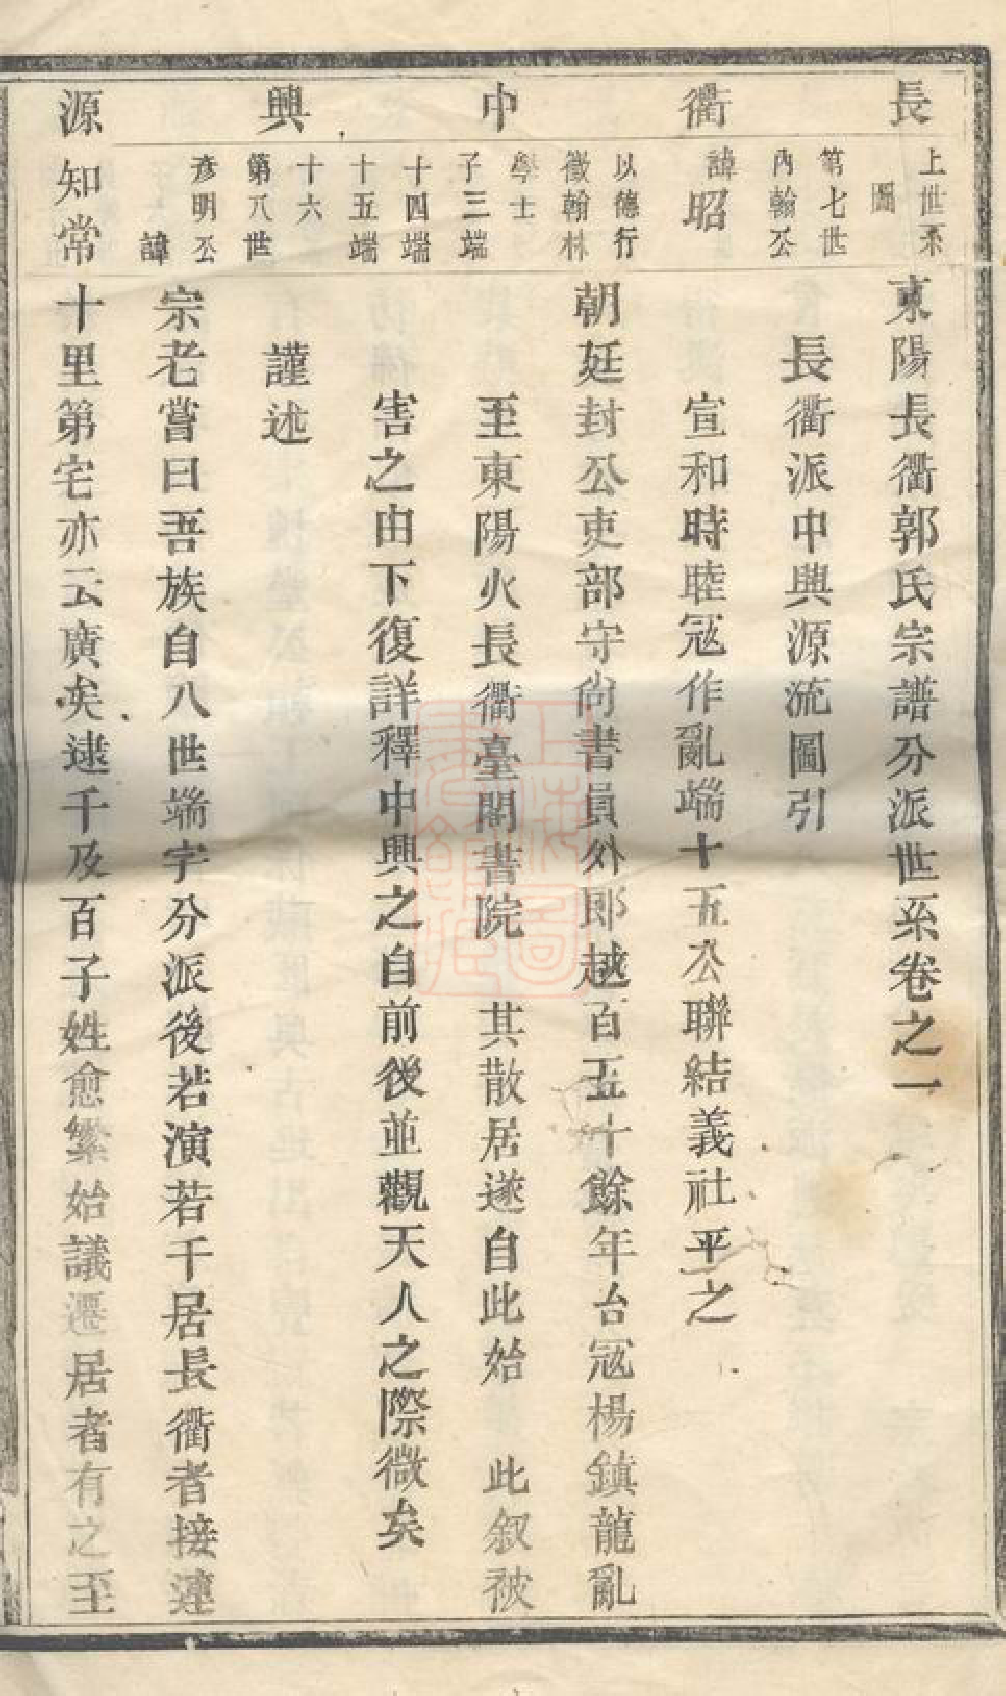 長衢中興源
上世系
圖
第七世
內翰公
諱昭
以德行
徵翰林
學士
子三端
十四端
十五端
十六
第八世
彥明公
諱
知常
東陽長衢郭氏宗譜分派世系卷之一
長衢派中興源流圖引
宣和時睦冦作亂端十五公聯結義社平之
朝廷封公吏部守尚書員外郎越百五十餘年台冦楊鎮龍亂
至東陽火長衢臺閣書院 其散居遂自此始 此叙被
害之由下復詳釋中興之自前後並觀天人之際微矣
謹述
宗老嘗曰吾族自八世端字分派後若演若干居長衢者接連
十里第宅亦云廣矣逮千及百子姓愈繁始議遷居者有之至